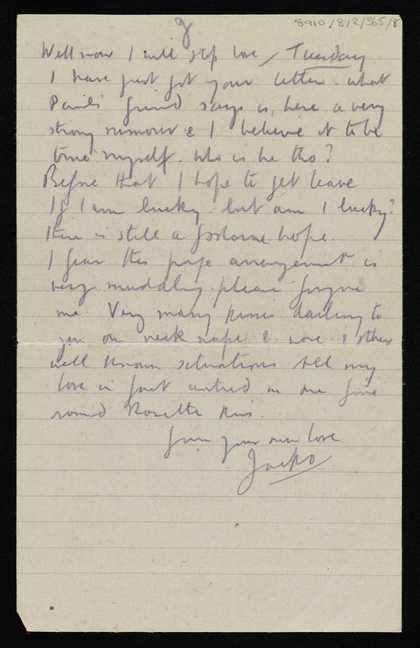 8
8910/8/2/365/8
Well now I will stop love / Tuesday
I have just got your letter. what
Paul's friend says is, here a very
strong rumour & I believe it to be
true myself. Who is he tho?
Before that I hope to get leave
If I am lucky but am I lucky?
there is still a forlorn hope.
I fear this page arrangement is
very muddling please forgive
me. Very many kisses darling to
you on neck nape & nose & other
well known situations All my
love is just united in one fine
round Rosette kiss.
from your own love
Jacko